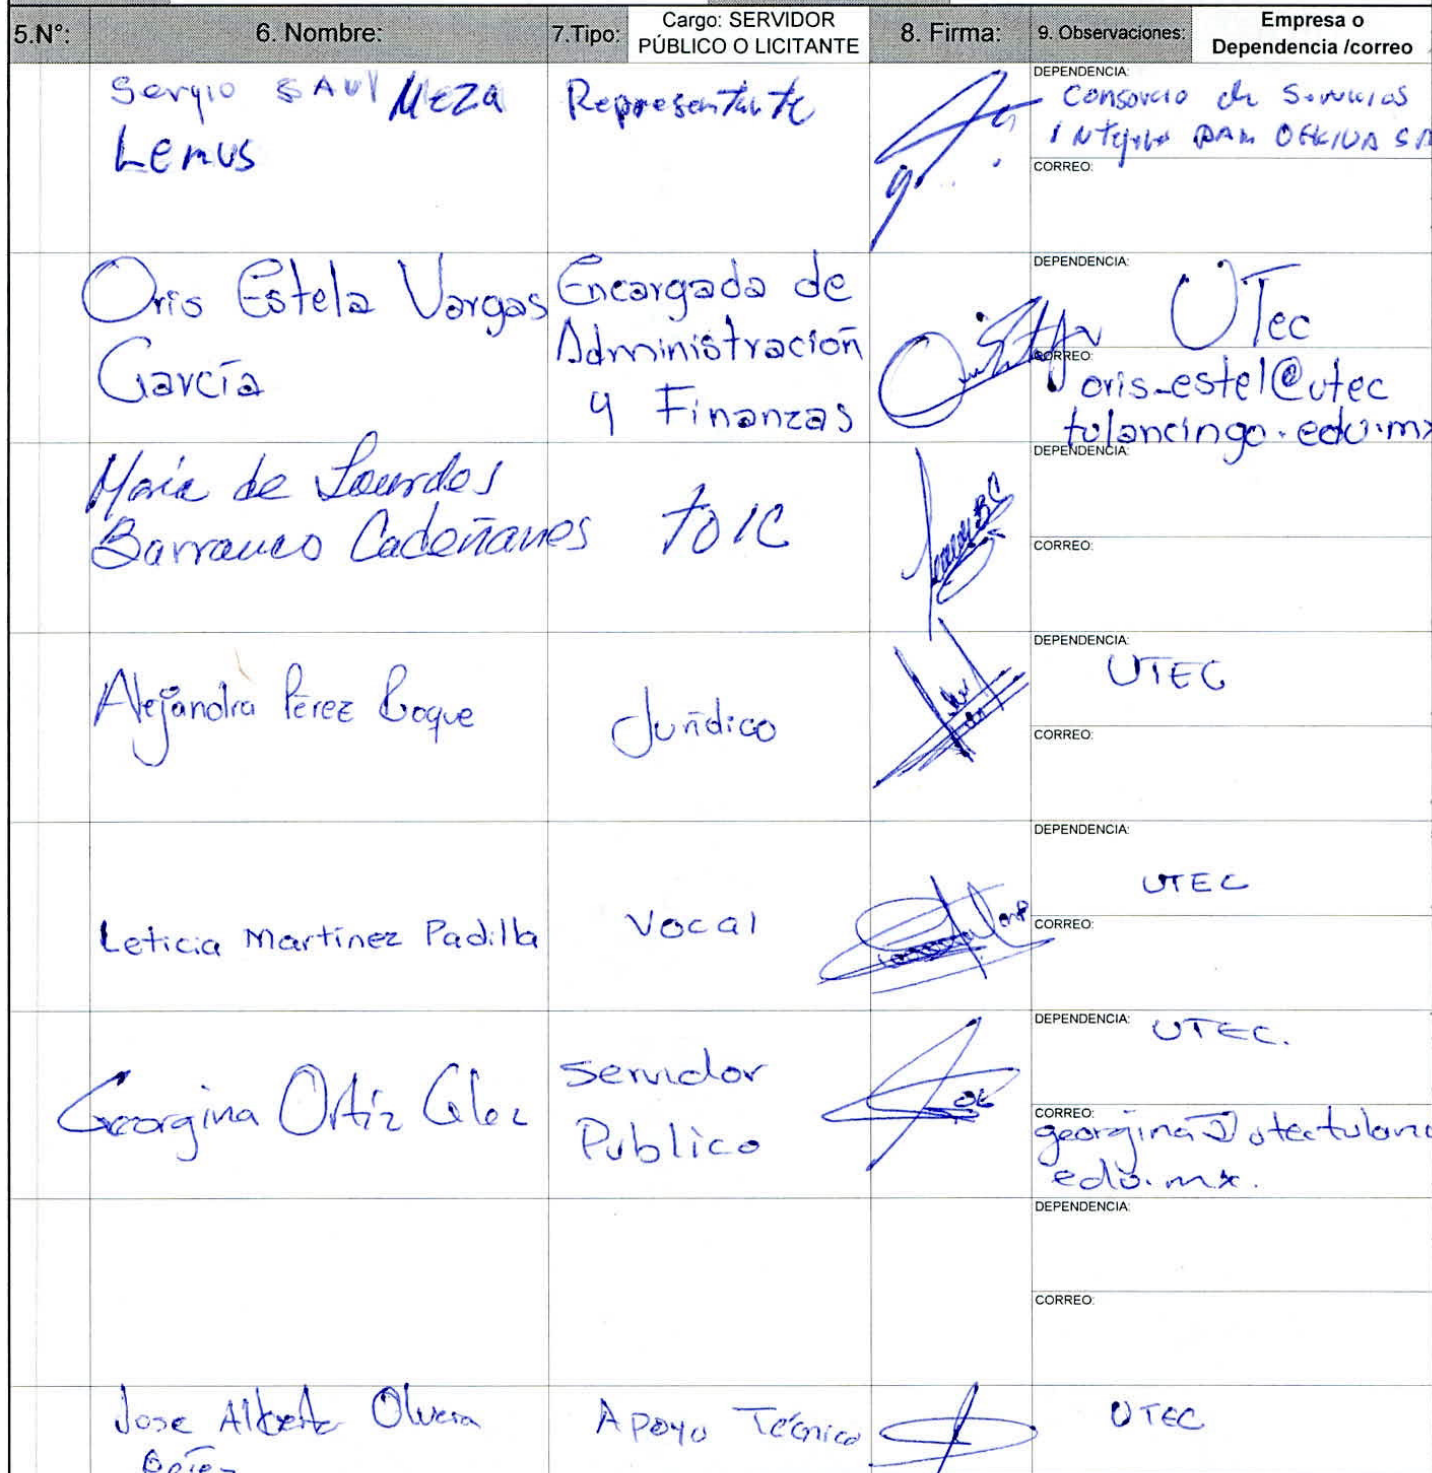 5.N°: 6. Nombre: 7.Tipo: Cargo: SERVIDOR PÚBLICO O LICITANTE 8. Firma: 9. Observaciones: Empresa o Dependencia /correo
Sergio SAUl MEZA
Lemus
Representante
DEPENDENCIA:
Consorcio de Servicios
CORREO:
Oris Estela Vargas
García
Encargada de
Administración
y Finanzas
DEPENDENCIA:
UTec
CORREO:
oris_estel@utec
tulancingo.edu.mx
María de Lourdes
Barranco Cadeñanes
TOIC
DEPENDENCIA:
CORREO:
Alejandra Pérez Roque
Jurídico
DEPENDENCIA:
UTEC
CORREO:
Leticia Martínez Padilla
Vocal
DEPENDENCIA:
UTEC
CORREO:
Georgina Ortíz Glez
Servidor
Publico
DEPENDENCIA:
UTEC.
CORREO:
georgina@utectulanc
edu.mx.
DEPENDENCIA:
CORREO:
Jose Alberto Olvera
Apoyo Técnico
UTEC